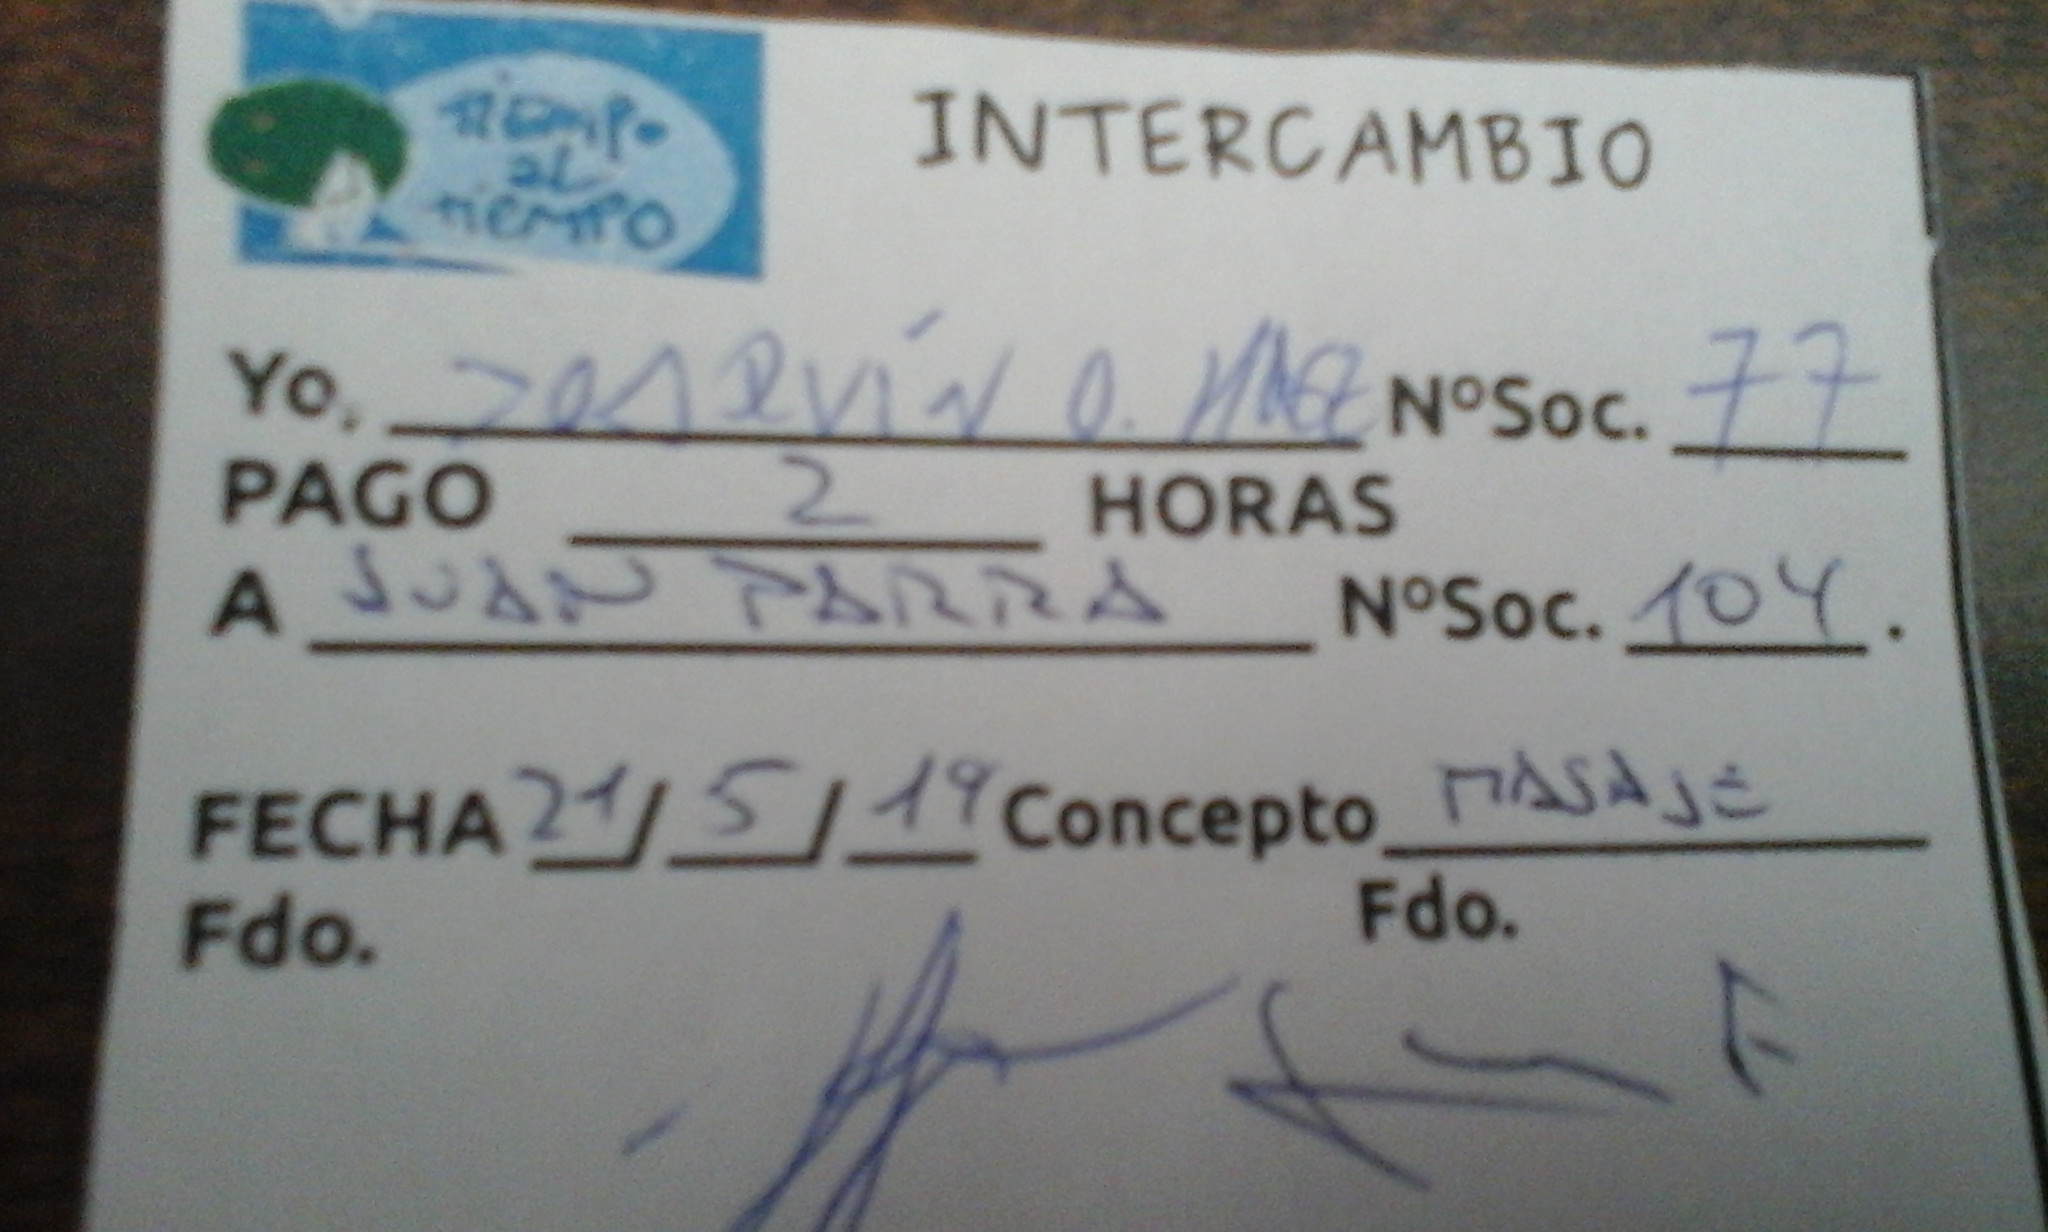 TIEMPO
AL
TIEMPO
INTERCAMBIO
Yo, JOAQUÍN O. NºSoc. 77
PAGO 2 HORAS
A JUAN PARRA NºSoc. 104.
FECHA 21/5/19 Concepto MASAJE
Fdo. Fdo.